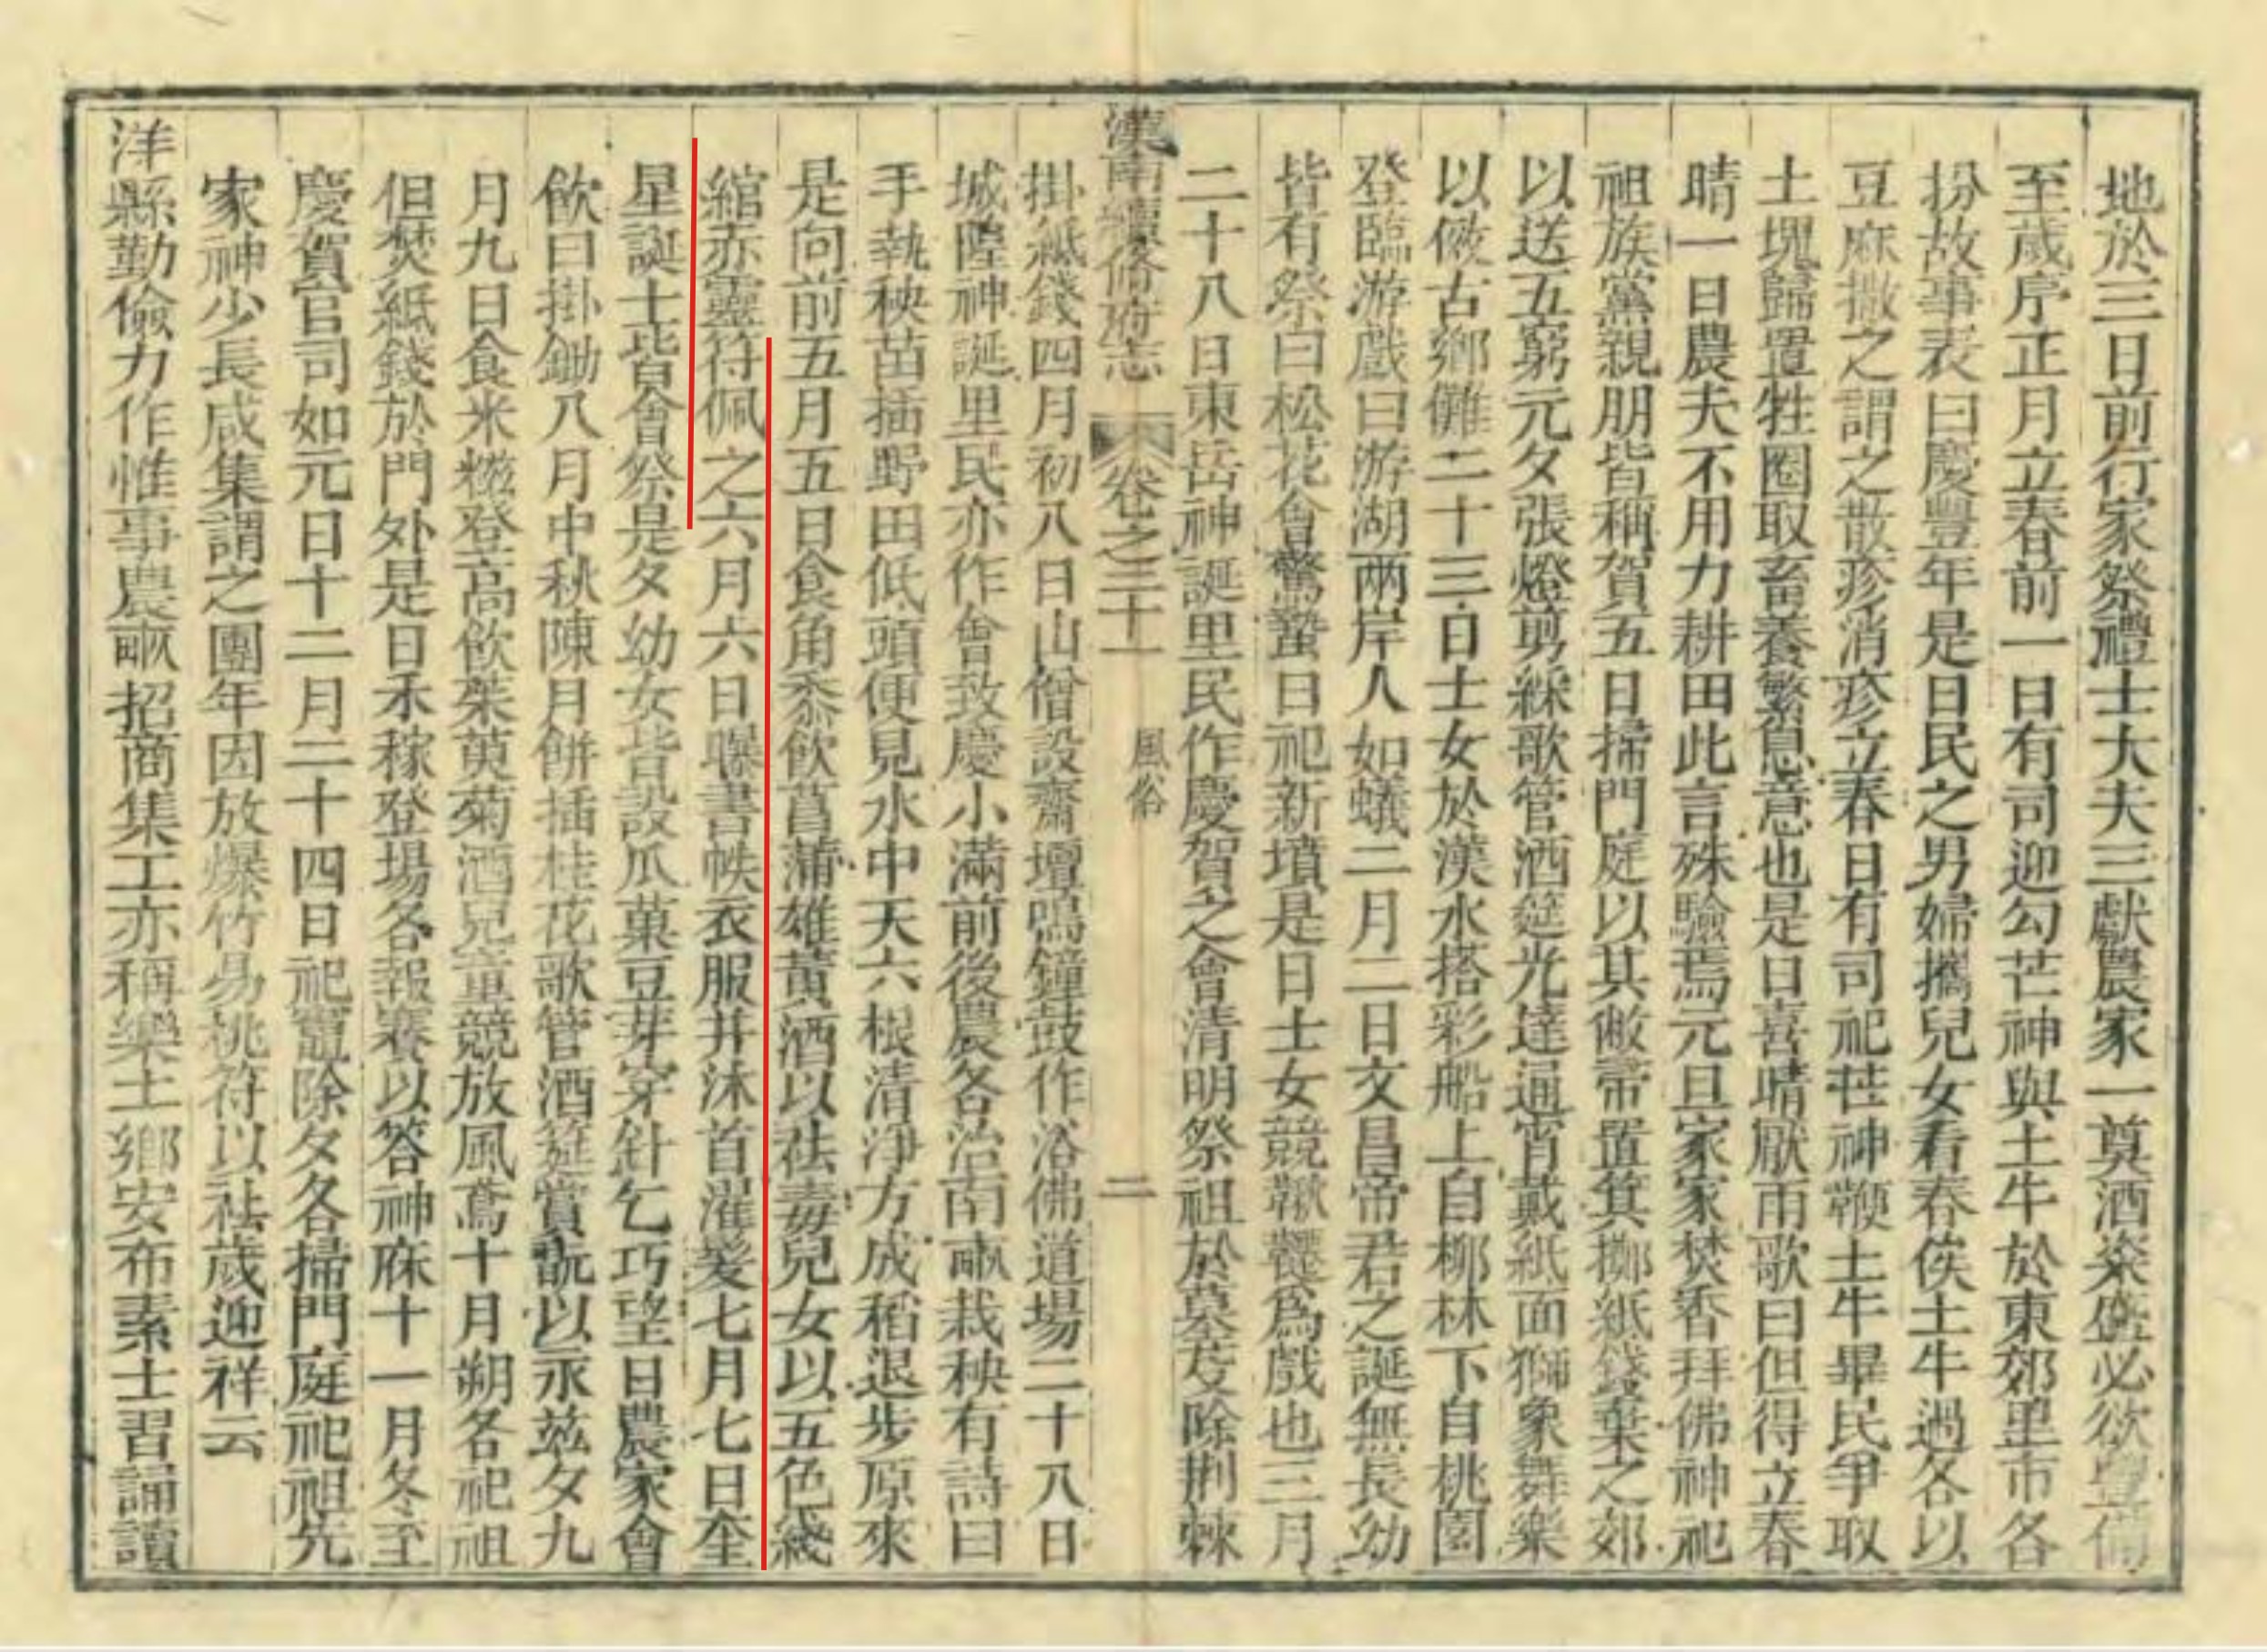 地於三日前行家祭禮士大夫三獻農家一奠酒粢盛必欲豐備
至歲序正月立春前一日有司迎勾芒神與土牛於東郊里市各
扮故事表曰慶豐年是日民之男婦攜兒女看春俟土牛過各以
豆麻撒之謂之散疹消疹立春日有司祀芒神鞭土牛畢民爭取
土塊歸置牲圈取畜養繁息意也是日喜晴厭雨歌曰但得立春
晴一日農夫不用力耕田此言殊驗焉元旦家家焚香拜佛神祀
祖族黨親朋皆稱賀五日掃門庭以其敝帚置箕擲紙錢棄之郊
以送五窮元夕張燈剪綵歌管酒筵光達通宵戴紙面獅象舞樂
以倣古鄉儺二十三日士女於漢水搭彩船上自柳林下自桃園
登臨游戲曰游湖兩岸人如蟻二月二日文昌帝君之誕無長幼
皆有祭曰松花會驚蟄日祀新墳是日士女競鞦韆為戲也三月
二十八日東岳神誕里民作慶賀之會清明祭祖於墓芟除荆棘
漢南續修府志 卷之二十一 風俗 二
掛紙錢四月初八日山僧設齋壇鳴鐘鼓作浴佛道場二十八日
城隍神誕里民亦作會致慶小滿前後農各治南畝栽秧有詩曰
手執秧苗插野田低頭便見水中天六根清淨方成稻退步原來
是向前五月五日食角黍飲菖蒲雄黃酒以祛毒兒女以五色綫
綰赤靈符佩之六月六日曝書帙衣服并沐首濯髮七月七日奎
星誕士皆會祭是夕幼女皆設瓜菓豆芽穿針乞巧望日農家會
飲曰掛鋤八月中秋陳月餅插桂花歌管酒筵賞翫以永茲夕九
月九日食米糍登高飲茱萸菊酒兒童競放風鳶十月朔各祀祖
但焚紙錢於門外是日禾稼登場各報賽以答神庥十一月冬至
慶賀官司如元日十二月二十四日祀竈除夕各掃門庭祀祖先
家神少長咸集謂之團年因放爆竹易桃符以祛歲迎祥云
洋縣勤儉力作惟事農畝招商集工亦稱樂土鄉安布素士習誦讀